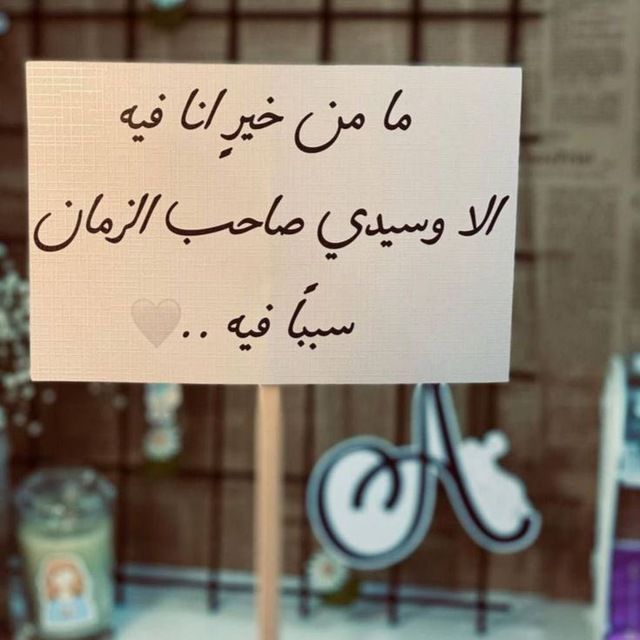 ما من خيرٍ انا فيه
الا وسيدي صاحب الزمان
سببًا فيه ..🤍
A